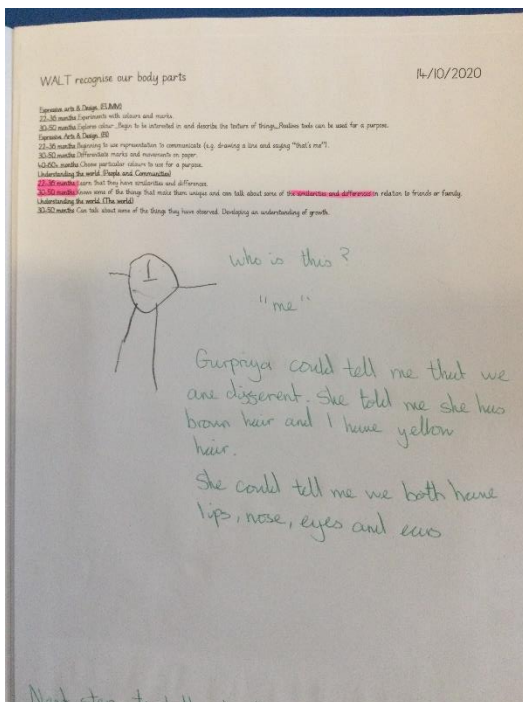 WALT recognise our body parts
14/10/2020
Expressive arts & Design (EUMM)
22-36 months Experiments with colours and marks.
30-50 months Explores colour. Begin to be interested in and describe the texture of things. Realises tools can be used for a purpose.
Expressive Arts & Design (BI)
22-36 months Beginning to use representation to communicate (e.g. drawing a line and saying "that's me").
30-50 months Differentiate marks and movements on paper.
40-60+ months Choose particular colours to use for a purpose.
Understanding the world (People and Communities)
22-36 months Learn that they have similarities and differences.
30-50 months Knows some of the things that make them unique and can talk about some of the similarities and differences in relation to friends or family.
Understanding the world (The world)
30-50 months Can talk about some of the things they have observed. Developing an understanding of growth.
who is this?
"me"
Gurpriya could tell me that we
are different. She told me she has
brown hair and I have yellow
hair.
She could tell me we both have
lips, nose, eyes and ears
Next step to